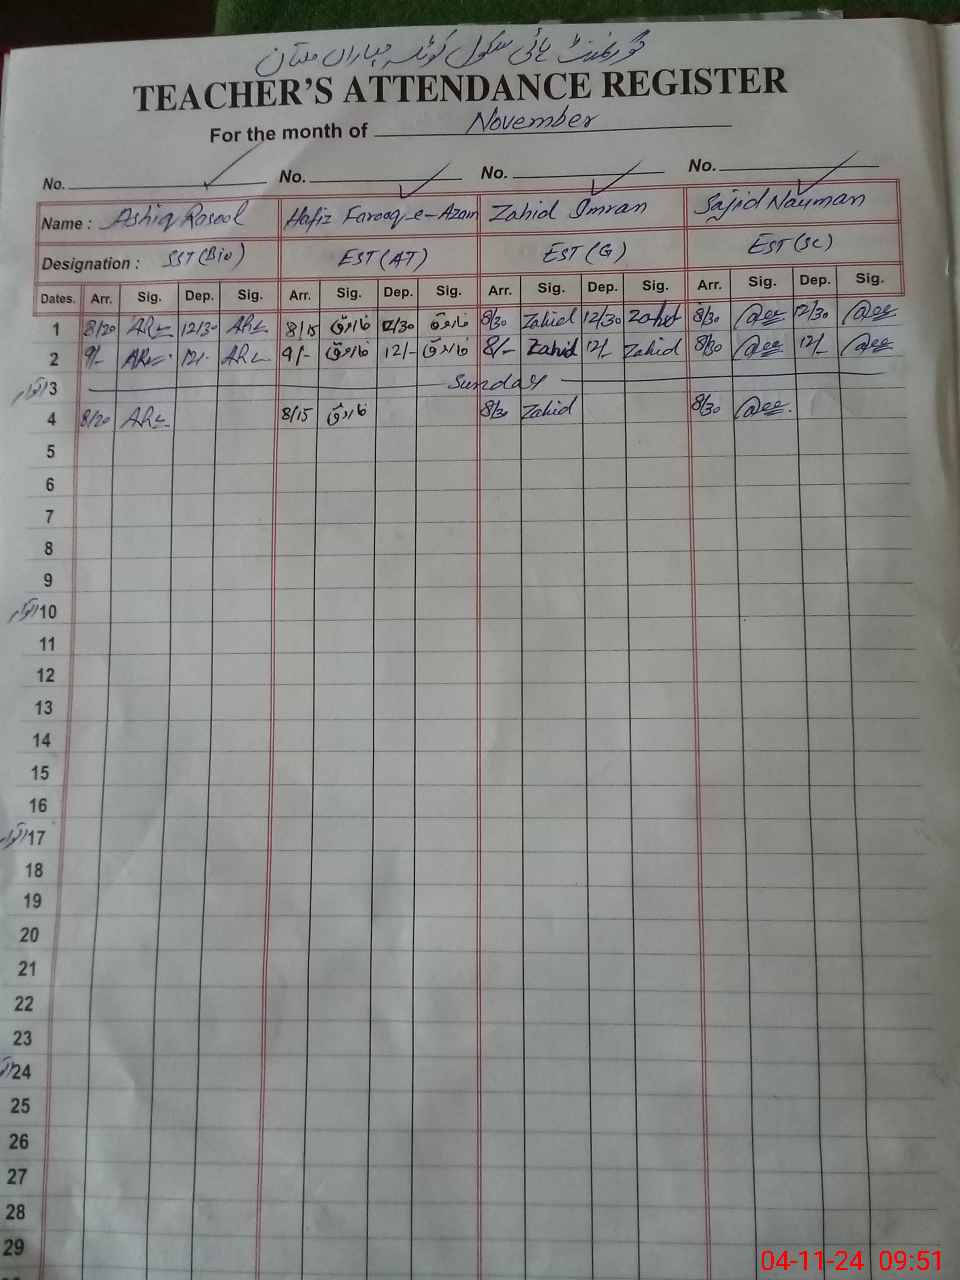 گورنمنٹ ہائی سکول کوٹلہ مہاراں ملتان
TEACHER'S ATTENDANCE REGISTER
For the month of November
No. No. No. No.
Name : Ashiq Rasool Hafiz Farooq-e-Azam Zahid Imran Sajid Nauman
Designation : SST (Bio) EST (AT) EST (G) EST (SC)
Dates. Arr. Sig. Dep. Sig. Arr. Sig. Dep. Sig. Arr. Sig. Dep. Sig. Arr. Sig. Dep. Sig.
1 8/20 12/30 8/15 فاروق 12/30 فاروق 8/30 Zahid 12/30 Zahid 8/30 12/30
2 9/- 12/- 9/- فاروق 12/- فاروق 8/- Zahid 12/- Zahid 8/30 12/-
اتوار 3 Sunday
4 8/20 8/15 فاروق 8/30 Zahid 8/30
5
6
7
8
9
اتوار 10
11
12
13
14
15
16
اتوار 17
18
19
20
21
22
23
24
25
26
27
28
29
04-11-24 09:51